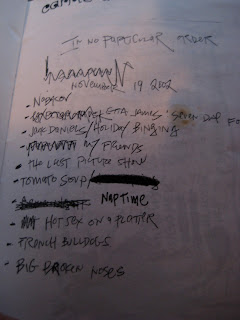 IN NO PARTICULAR ORDER
NOVEMBER 19 2002
ETTA JAMES' SEVEN DAY FO
- JACK DANIELS/HOLIDAY BINGING
W/ FRIENDS
- THE LAST PICTURE SHOW
- TOMATO SOUP/
- NAPTIME
- HOT SEX ON A PLATTER
- FRENCH BULLDOGS
- BIG BROKEN NOSES